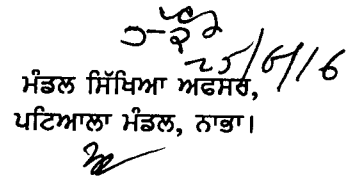 25/6/16
ਮੰਡਲ ਸਿੱਖਿਆ ਅਫਸਰ,
ਪਟਿਆਲਾ ਮੰਡਲ, ਨਾਭਾ।